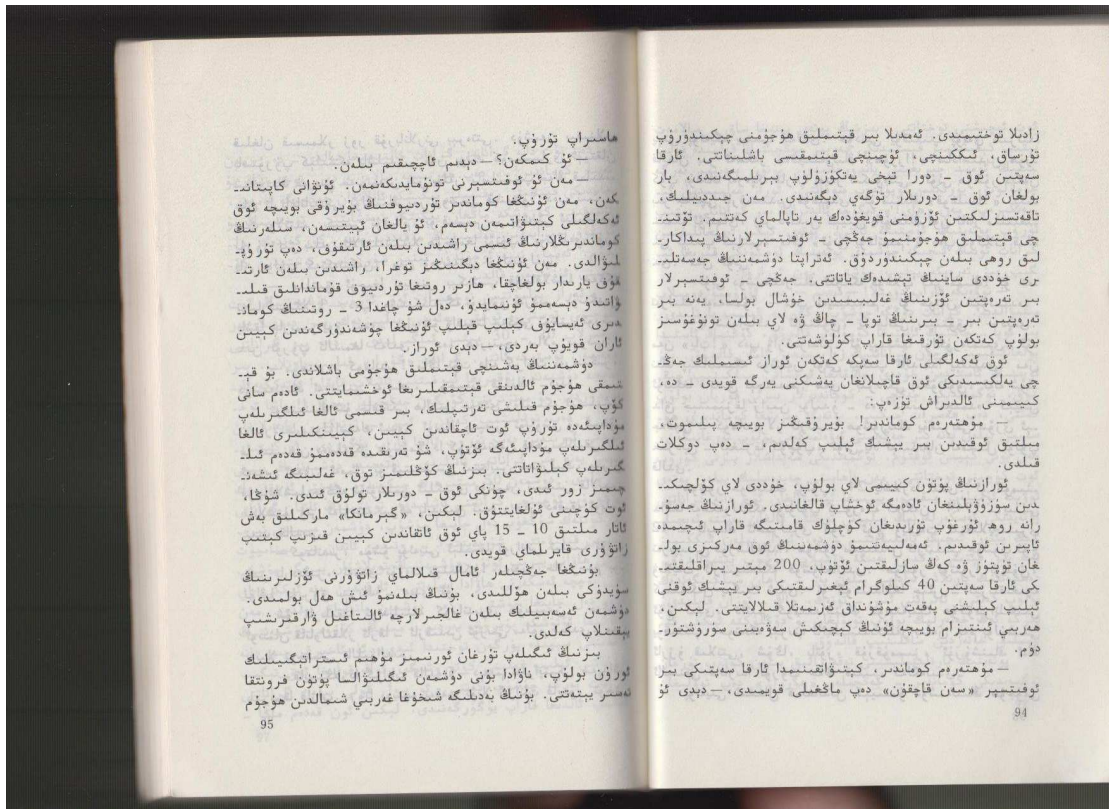 زادىلا توختىمىدى. ئەمدىلا بىر قېتىملىق ھۇجۇمنى چېكىندۈرۈپ
تۇرساق، ئىككىنچى، ئۈچىنچى قېتىمقىسى باشلىناتتى. ئارقا
سەپتىن ئوق ـ دورا تېخى يەتكۈزۈلۈپ بېرىلمىگەنىدى، بار
بولغان ئوق ـ دورىلار تۈگەي دېگەنىدى. مەن جىددىيلىك،
تاقەتسىزلىكتىن ئۆزۈمنى قويغۇدەك يەر تاپالماي كەتتىم. تۆتىنـ
چى قېتىملىق ھۇجۇمنىمۇ جەڭچى ـ ئوفىتسېرلارنىڭ پىداكارـ
لىق روھى بىلەن چېكىندۈردۇق. ئەتراپتا دۈشمەننىڭ جەسەتلىـ
رى خۇددى ساينىڭ تېشىدەك ياتاتتى. جەڭچى ـ ئوفىتسېرلار
بىر تەرەپتىن ئۆزىنىڭ غەلىبىسىدىن خۇشال بولسا، يەنە بىر
تەرەپتىن بىر ـ بىرىنىڭ توپا ـ چاڭ ۋە لاي بىلەن تونۇغۇسىز
بولۇپ كەتكەن تۇرقىغا قاراپ كۈلۈشەتتى.
ئوق ئەكەلگىلى ئارقا سەپكە كەتكەن ئوراز ئىسىملىك جەڭـ
چى يەلكىسىدىكى ئوق قاچىلانغان يەشىكنى يەرگە قويدى ـ دە،
كىيىمىنى ئالدىراش تۈزەپ:
— مۆھتەرەم كوماندىر! بۇيرۇقىڭىز بويىچە پىلىموت،
مىلتىق ئوقىدىن بىر يېشىك ئېلىپ كەلدىم، ـ دەپ دوكلات
قىلدى.
ئورازنىڭ پۈتۈن كىيىمى لاي بولۇپ، خۇددى لاي كۆلچىكىـ
دىن سۈزۈۋېلىنغان ئادەمگە ئوخشاپ قالغانىدى. ئورازنىڭ جەسۇـ
رانە روھ ئۇرغۇپ تۇرىدىغان كۈچلۈك قامىتىگە قاراپ ئىچىمدە
ئاپىرىن ئوقىدىم. ئەمەلىيەتتىمۇ دۈشمەننىڭ ئوق مەركىزى بولـ
غان تۈپتۈز ۋە كەڭ سازلىقتىن ئۆتۈپ، 200 مېتىر يىراقلىقتىـ
كى ئارقا سەپتىن 40 كىلوگرام ئېغىرلىقتىكى بىر يېشىك ئوقنى
ئېلىپ كېلىشنى پەقەت مۇشۇنداق ئەزىمەتلا قىلالايتتى. لېكىن،
ھەربىي ئىنتىزام بويىچە ئۇنىڭ كېچىكىش سەۋەبىنى سۈرۈشتۈرـ
دۈم.
— مۆھتەرەم كوماندىر، كېتىۋاتقىنىمدا ئارقا سەپتىكى بىر
ئوفىتسېر «سەن قاچقۇن» دەپ ماڭغىلى قويمىدى، — دېدى ئۇ
94
ھاسىراپ تۇرۇپ.
— ئۇ كىمكەن؟ — دېدىم ئاچچىقىم بىلەن.
— مەن ئۇ ئوفىتسېرنى تونۇمايدىكەنمەن. ئۇنۋانى كاپىتانـ
كەن، مەن ئۇنىڭغا كوماندىر تۇردىيوفنىڭ بۇيرۇقى بويىچە ئوق
ئەكەلگىلى كېتىۋاتىمەن دېسەم، ئۇ يالغان ئېيتتىسەن، سىلەرنىڭ
كوماندىرىڭلارنىڭ ئىسمى راشىدىن بىلەن ئارتىقۇف، دەپ تۇرۇپـ
لىۋالدى. مەن ئۇنىڭغا دېگىنىڭىز توغرا، راشىدىن بىلەن ئارتىـ
قۇف يارىدار بولغاچقا، ھازىر روتىغا تۇردىيوف قوماندانلىق قىلىـ
ۋاتىدۇ دېسەممۇ ئۇنىمايدۇ، دەل شۇ چاغدا 3 ـ روتىنىڭ كومانـ
دىرى ئەيسايۇف كېلىپ قېلىپ ئۇنىڭغا چۈشەندۈرگەندىن كېيىن
ئاران قويۇپ بەردى، — دېدى ئوراز.
دۈشمەننىڭ بەشىنچى قېتىملىق ھۇجۇمى باشلاندى. بۇ قېـ
تىمقى ھۇجۇم ئالدىنقى قېتىمقىلىرىغا ئوخشىمايتتى. ئادەم سانى
كۆپ، ھۇجۇم قىلىشى تەرتىپلىك، بىر قىسمى ئالغا ئىلگىرىلەپ
مۇداپىئەدە تۇرۇپ ئوت ئاچقاندىن كېيىن، كېيىنكىلىرى ئالغا
ئىلگىرىلەپ مۇداپىئەگە ئۆتۈپ، شۇ تەرىقىدە قەدەممۇ قەدەم ئىلـ
گىرىلەپ كېلىۋاتاتتى. بىزنىڭ كۆڭلىمىز توق، غەلىبىگە ئىشەنـ
چىمىز زور ئىدى، چۈنكى ئوق ـ دورىلار تولۇق ئىدى. شۇڭا،
ئوت كۈچىنى ئۇلغايتتۇق. لېكىن، «گېرمانكا» ماركىلىق بەش
ئاتار مىلتىق 10 ـ 15 پاي ئوق ئاتقاندىن كېيىن قىزىپ كېتىپ
زاتۋۇرى قايرىلماي قويدى.
بۇنىڭغا جەڭچىلەر ئامال قىلالماي زاتۋۇرنى ئۆزلىرىنىڭ
سۈيدۈكى بىلەن ھۆللىدى، بۇنىڭ بىلەنمۇ ئىش ھەل بولمىدى.
دۈشمەن ئەسەبىيلىك بىلەن غالجىرلارچە ئالىتاغىل ۋارقىرىشىپ
يېقىنلاپ كەلدى.
بىزنىڭ ئىگىلەپ تۇرغان ئورنىمىز مۇھىم ئىستراتېگىيىلىك
ئورۇن بولۇپ، ناۋادا بۇنى دۈشمەن ئىگىلىۋالسا پۈتۈن فرونتقا
تەسىر يېتەتتى. بۇنىڭ بەدىلىگە شىخۇغا غەربىي شىمالدىن ھۇجۇم
95